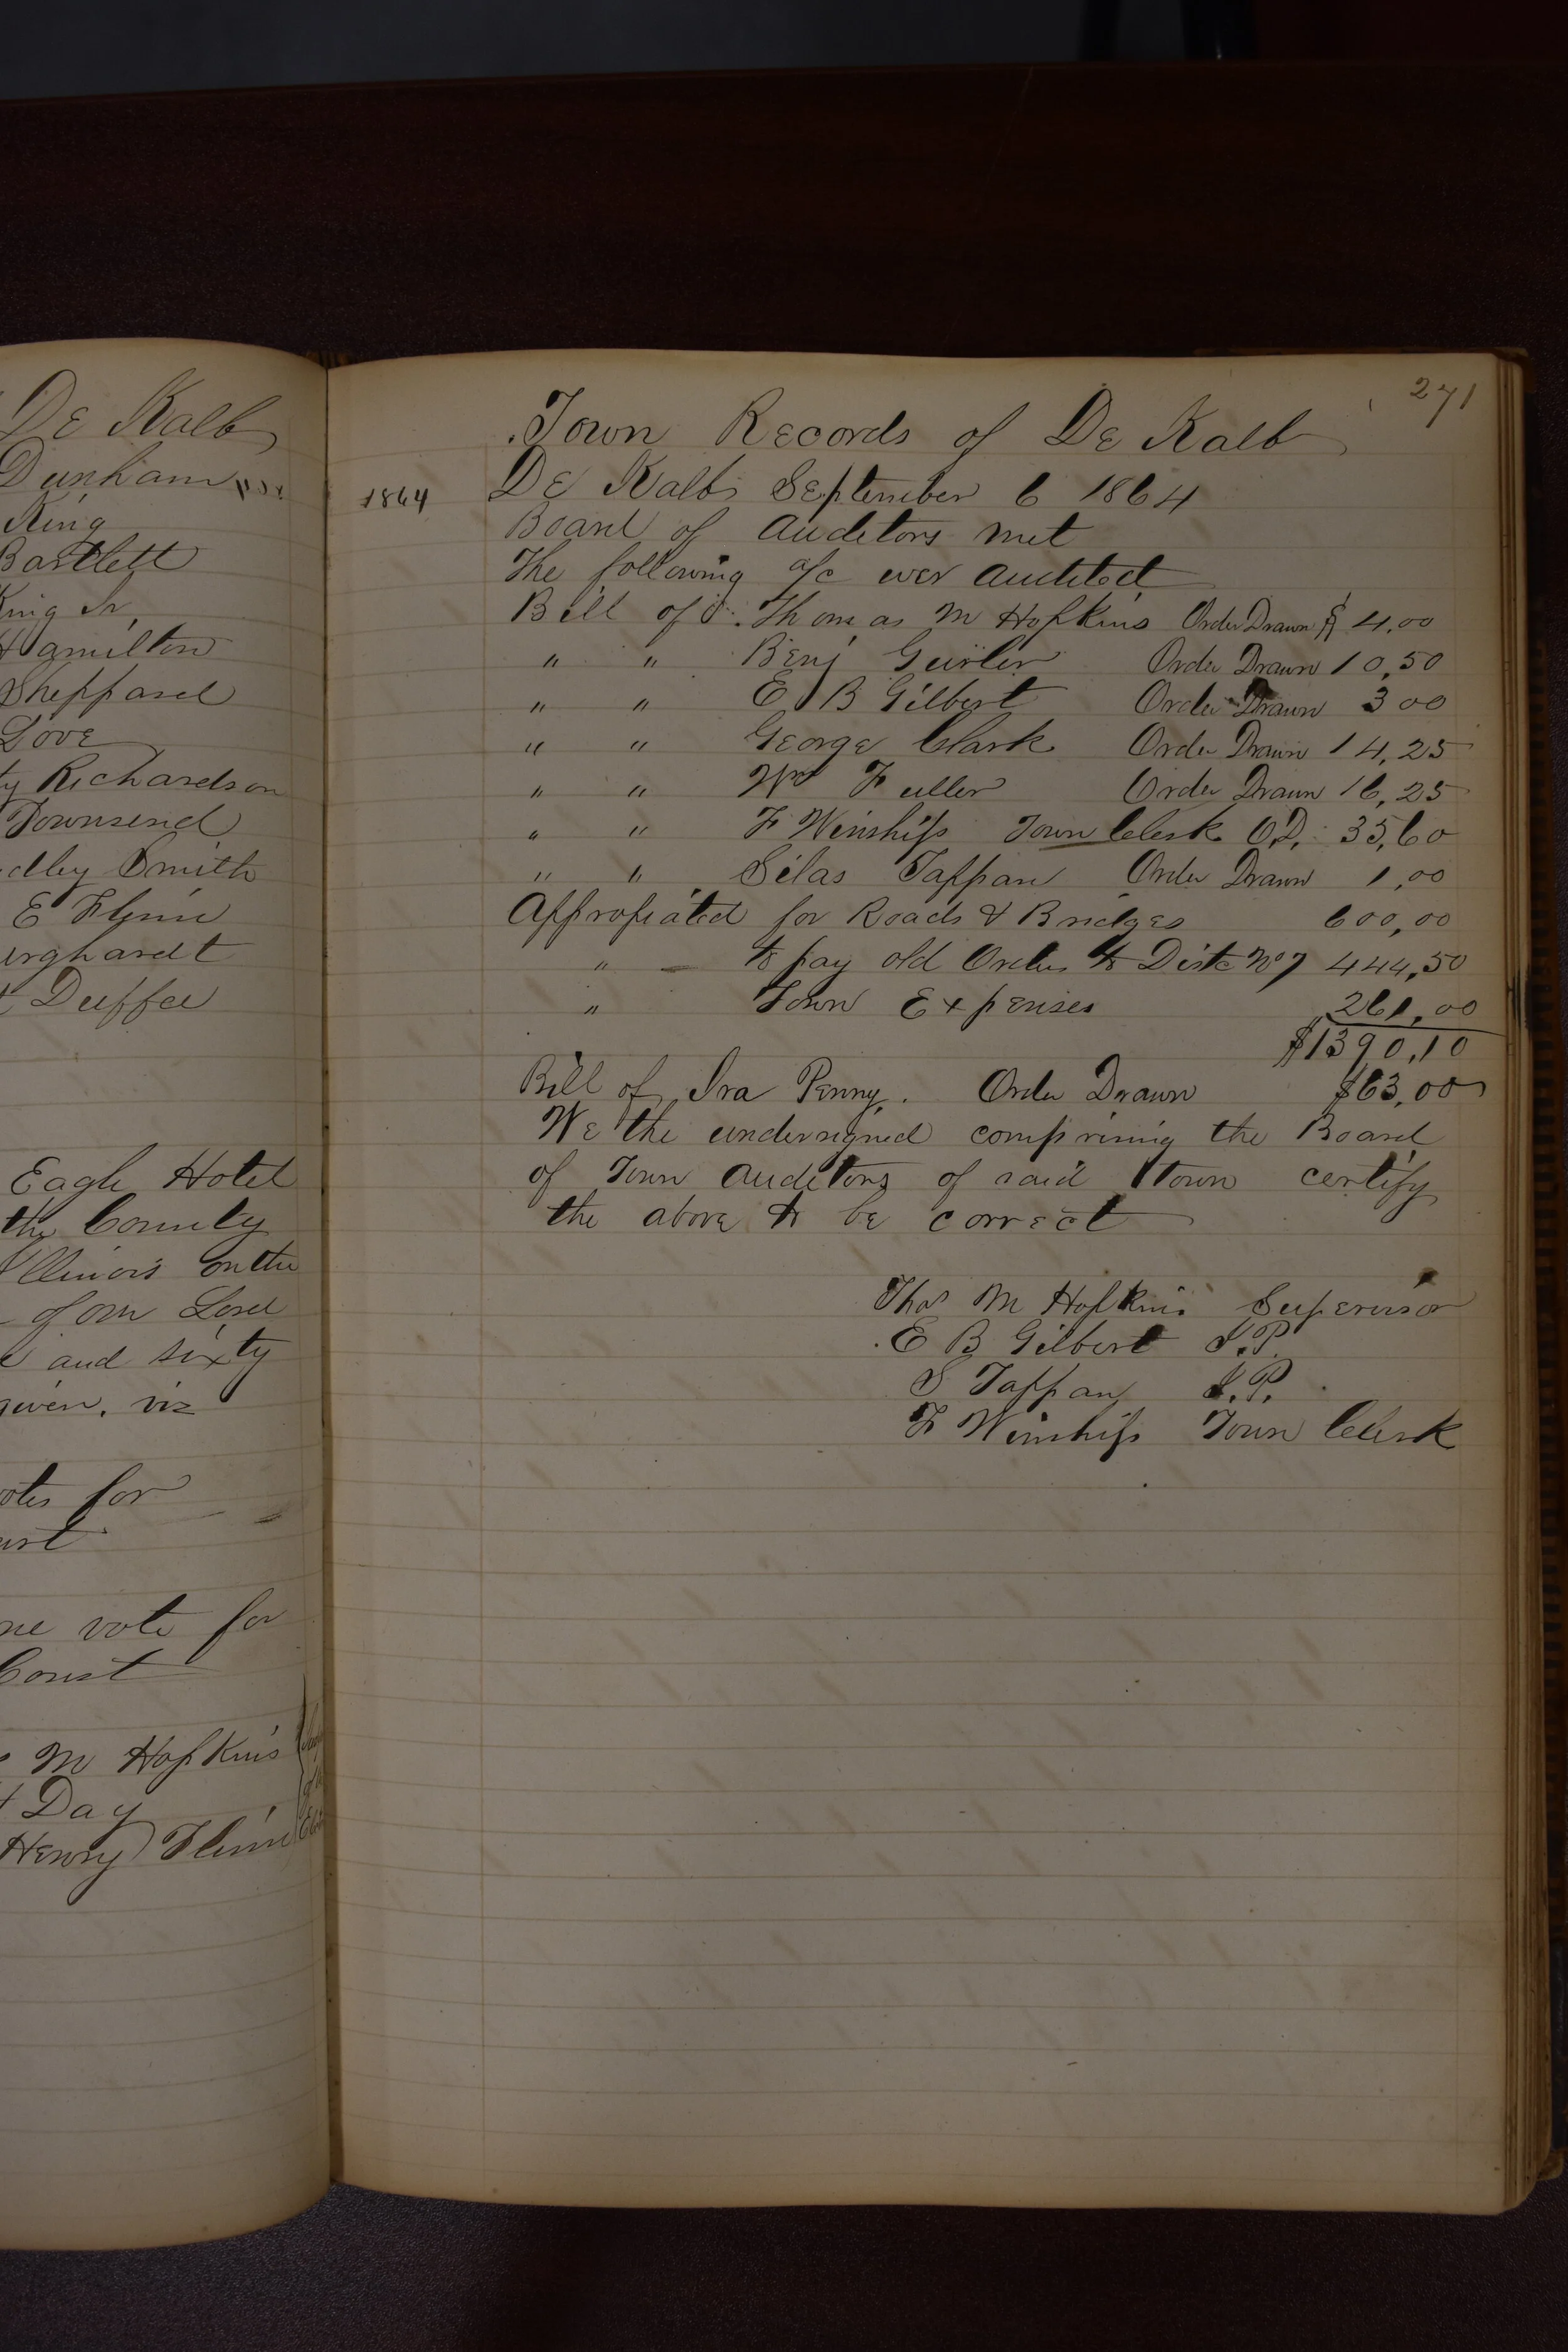 De Kalb
Dunham
King
Bartlett
King Jr
Hamilton
Sheppard
Love
Richardson
Townsend
Smith
E Flinn
Duffee
Eagle Hotel
the County
Illinois on the
of our Lord
and sixty
given, viz
for
one vote for
Const
M Hopkins
Day
Henry Flinn
271
Town Records of De Kalb
1864 De Kalb September 6 1864
Board of Auditors met
The following a/c wer audited
Bill of Thomas M Hopkins Order Drawn $ 4.00
" " Benj Gurler Order Drawn 10,50
" " E B Gilbert Order Drawn 3 00
" " George Clark Order Drawn 14,25
" " Wm Fuller Order Drawn 16,25
" " F Winship Town Clerk O.D. 35,60
" " Silas Tappan Order Drawn 1,00
Appropiated for Roads & Bridges 600,00
" to pay old Orders to Dist No 7 444,50
" Town Expenses 261,00
$1390,10
Bill of Ira Penny. Order Drawn $63,00
We the undersigned comprising the Board
of Town Auditors of said Town certify
the above to be correct
Thos M Hopkins Supervisor
E B Gilbert J.P.
S Tappan J.P.
F Winship Town Clerk